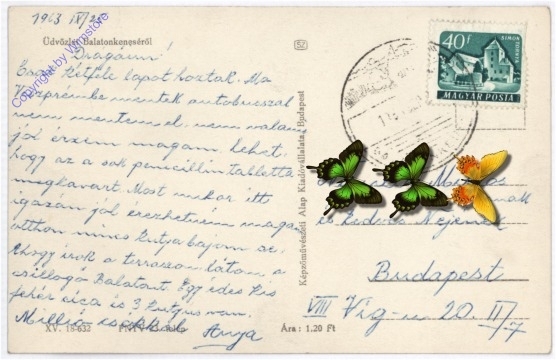 1963 IV/24
Üdvözlet Balatonkeneséről
Drágáim!
Csak kétféle lapot hoztak. Ma
Veszprémbe mentek autobusszal
nem mentem el, nem valami
jól érzem magam. Lehet,
hogy az a sok penicillin tabletta
megkavart. Most mikor itt
igazán jól érezhetném magam,
otthon nincs kutya bajom se.
Ahogy írok a terraszon látom a
csillogó Balatont. Egy édes kis
fehér cica és 3 kutyus van.
Millió csókkal Anya
XV. 18-632
Ára: 1.20 Ft
52
Képzőművészeti Alap Kiadóvállalata, Budapest
40f
SIMON
TORNYA
MAGYAR POSTA
és Kedves Nejének
Budapest
VIII Vig-u 20. II/7
Copyright by Wnpstore